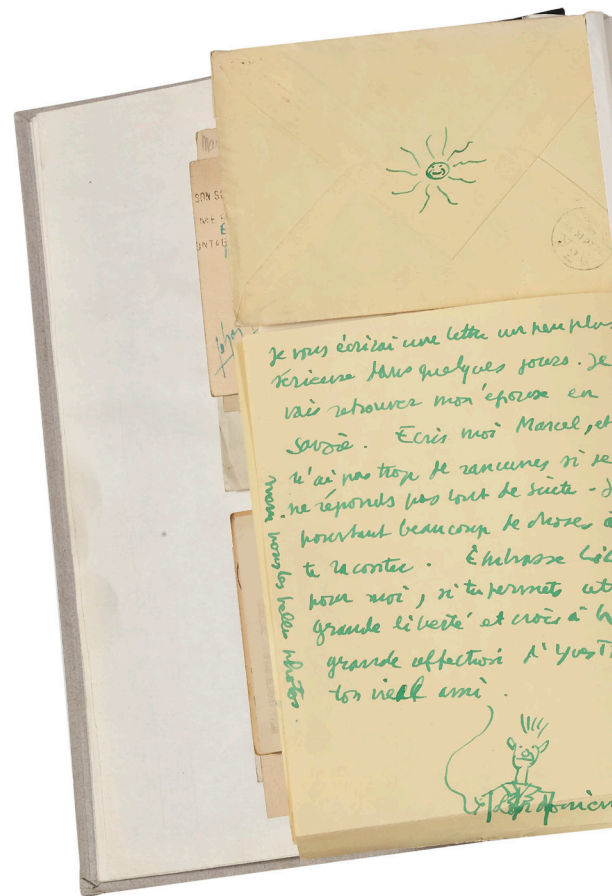 SON SE
je vous écrirai une lettre un peu plus
sérieuse dans quelques jours. Je
vais retrouver mon épouse en
Savoie. Ecris moi Marcel, et
n'ai pas trop de rancunes si je
ne réponds pas tout de suite - J
pourtant beaucoup de choses à
te raconter. Embrasse
pour moi, si tu permets
grande liberté et crois à
grande affection d'Yves
ton vieil ami.
pour les belles photos.